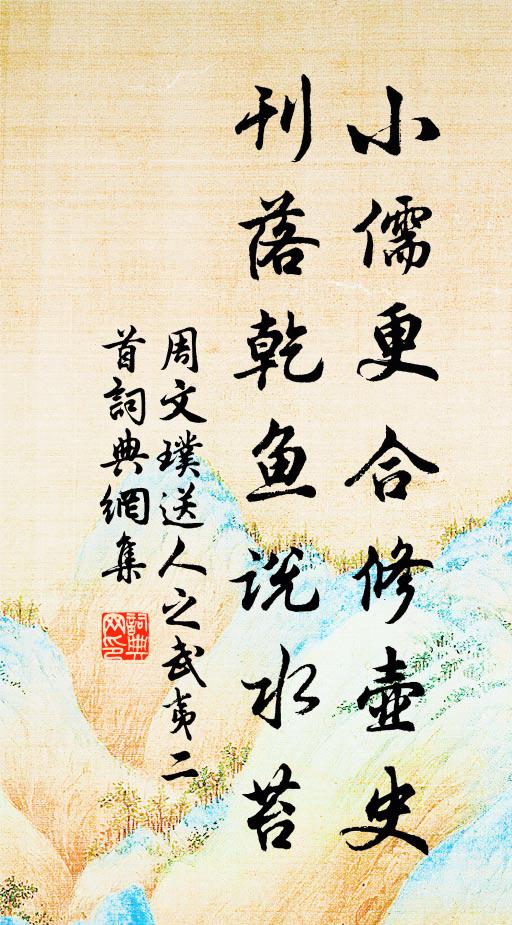 小儒更合修壺史
刊落乾魚说水苔
周文璞送人之武夷二
首詞典網集
詞典网印